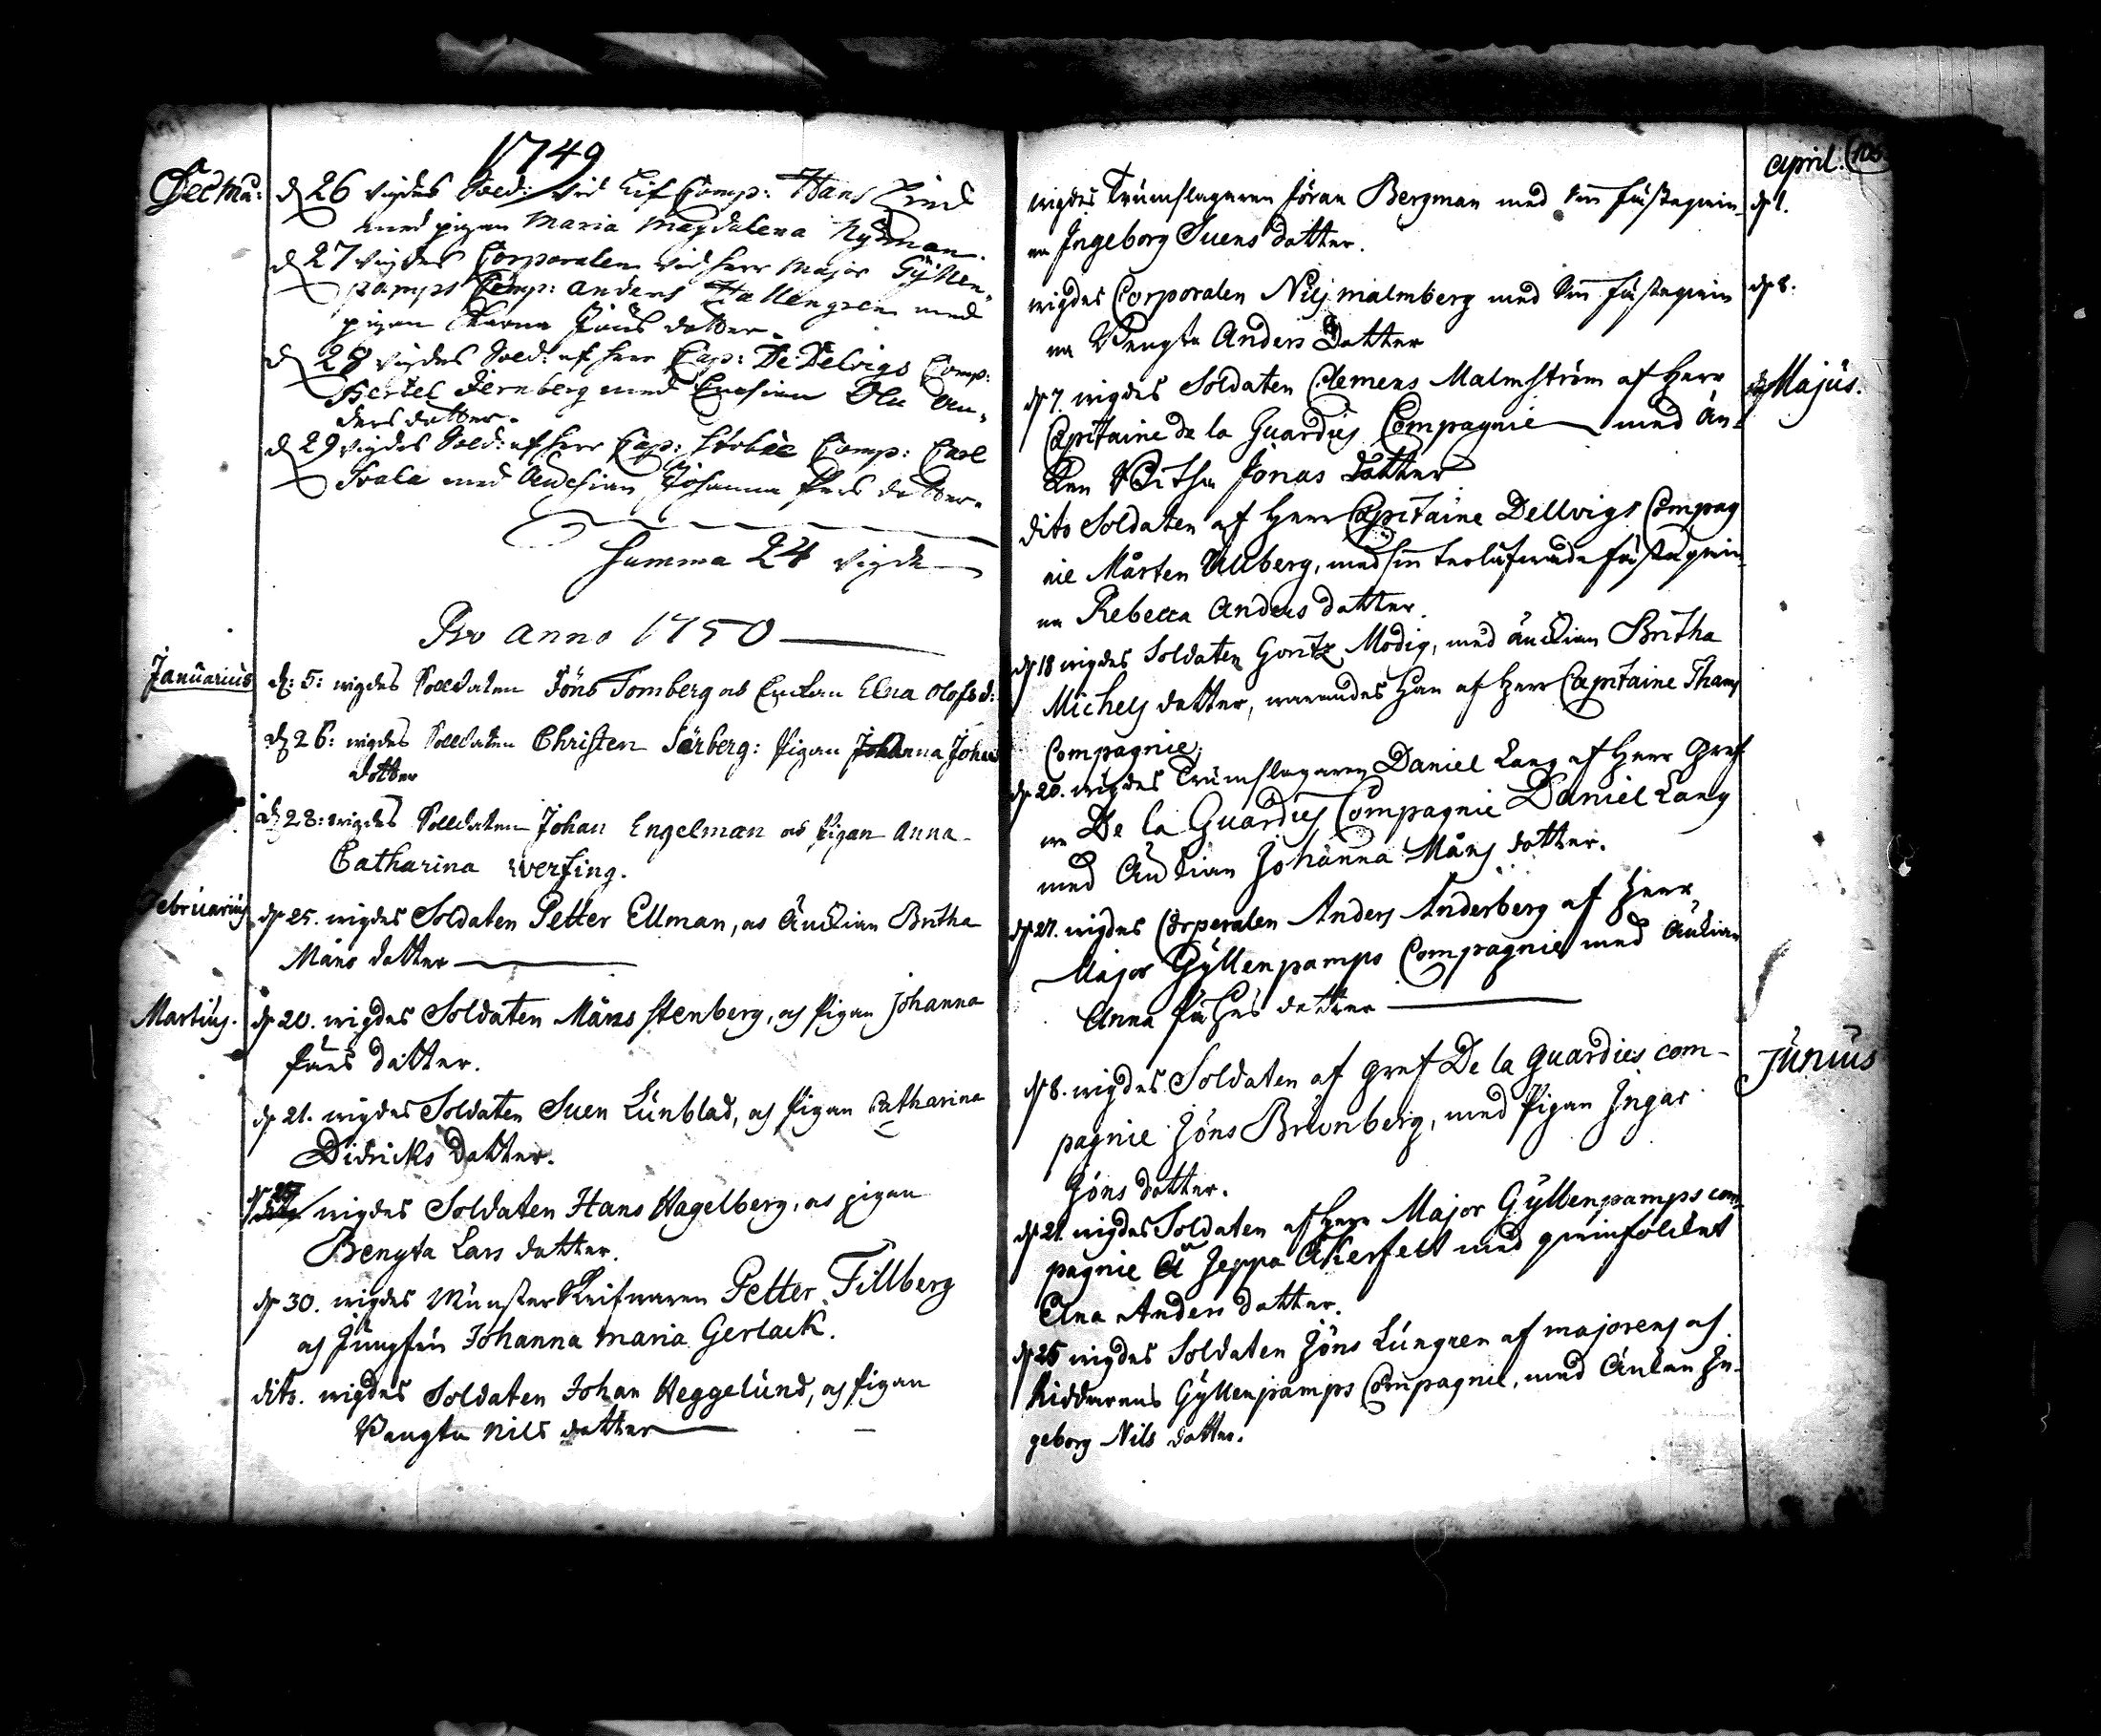 1749
Decmb:
d 26 vigdes Sold: vid Lif Comp: Hans Lind
med pigan Maria Magdalena Nyman.
d 27 vigdes Corporalen vid herr Major Gyllen-
pamps Comp: Anders Hallengren med
pigan Karna Påuls dotter.
d 28 vigdes Sold: af herr Cap: De Delvigs Comp:
Bertel Jernberg med Enckian Ola An-
ders dotter.
d 29 vigdes Sold: af herr Cap: Comp: Carl
Svala med Enckian Johanna Pers dotter.
Summa 24 vigde
Pro anno 1750
Januarius
d: 5: wigdes Solldaten Jöns Tomberg ock Enckan Elna Olofs d:
d 26: wigdes Solldaten Christen Sörberg: Pigan Johanna Johans
dotter
d 28: wigdes Solldaten Johan Engelman och Pigan Anna
Catharina Wersing.
Februarius
d 25. wigdes Soldaten Petter Ellman, och Änckian Britha
Måns dotter
Martius.
d 20. wigdes Soldaten Måns Stenberg, och Pigan Johanna
Påuls dotter.
d 21. wigdes Soldaten Suen Lünblad, och Pigan Catharina
Didricks dotter.
d 25 wigdes Soldaten Hans Hagelberg, och pigan
Bengta Lars dotter.
d 30. wigdes Münster Skrifwaren Petter Tillberg
och Jungfru Johanna Maria Gerlack.
dito. wigdes Soldaten Johan Heggelünd, och Pigan
Bengta Nils dotter
April. 105
wigdes Trümslagaren Jöran Bergman med sin fästeqwin- d 1.
na Ingeborg Suens dotter.
wigdes Corporalen Nils Malmberg med sin fästeqwin d 8.
na Bengta Anders Dotter
Majüs.
d 7. wigdes Soldaten Clemens Malmström af Herr
Capitaine de la Guardies Compagnie med än-
kan Britha Jonas dotter
dito Soldaten af Herr Capitaine Dellvigs Compag
nie Mårten Ullberg, med sin trolofwade fästeqwin-
na Rebecca Anders dotter.
d 18 wigdes Soldaten Modig, med änckian Britha
Michels dotter, warandes han af Herr Capitaine Thams
Compagnie.
d 20. wigdes Trümslagaren Daniel Lang af Herr Gref
we De la Guardies Compagnie Daniel Lang
med Änckian Johanna Måns dotter.
d 27. wigdes Corperalen Anders Anderberg af Herr
Major Gyllenpamps Compagnie med Änckian
Anna dotter
Jünius
d 8. wigdes Soldaten af Gref De la Guardies com-
pagnie Jöns Brünberg, med Pigan Ingar
Jöns dotter.
d 21 wigdes Soldaten af Herr Major Gyllenpamps com-
pagnie Jeppa Åkerfelt med qwinfolcket
Elna Anders dotter.
d 25 wigdes Soldaten Jöns Lüngren af majorens och
Riddarens Gyllenpamps Compagnie, med Änckan In-
geborg Nils dotter.